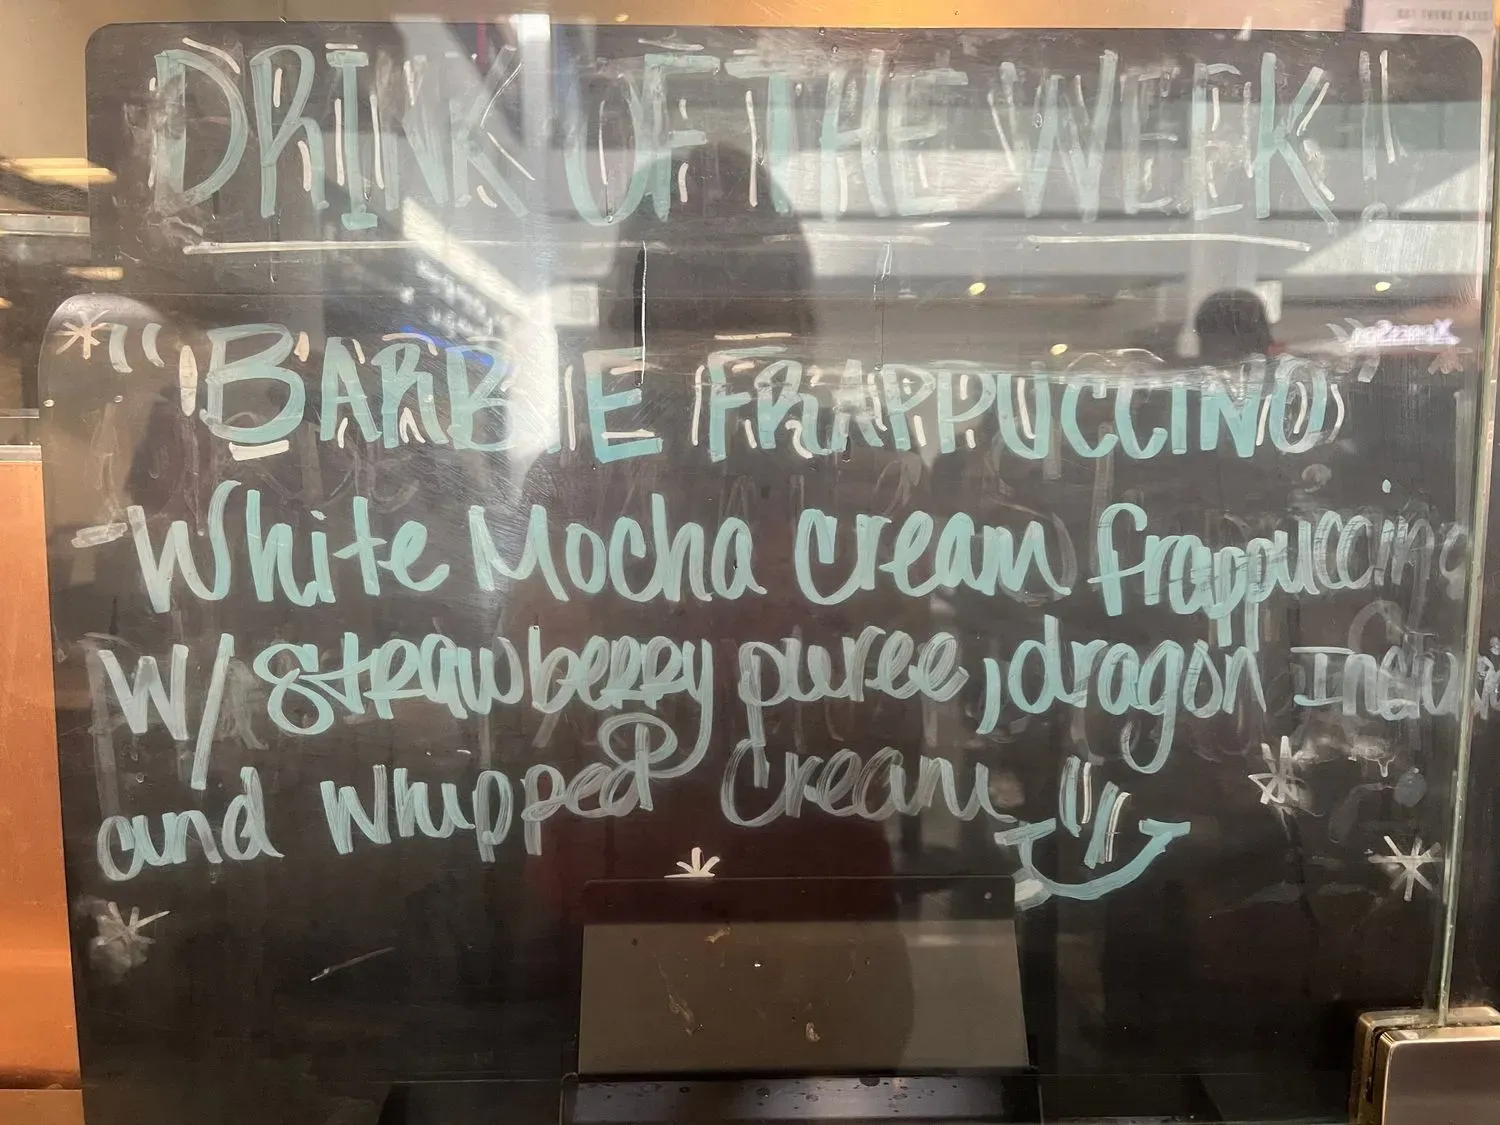 DRINK OF THE WEEK!
"BARBIE FRAPPUCCINO"
-White Mocha cream frappuccino
w/ strawberry puree, dragon
and whipped cream